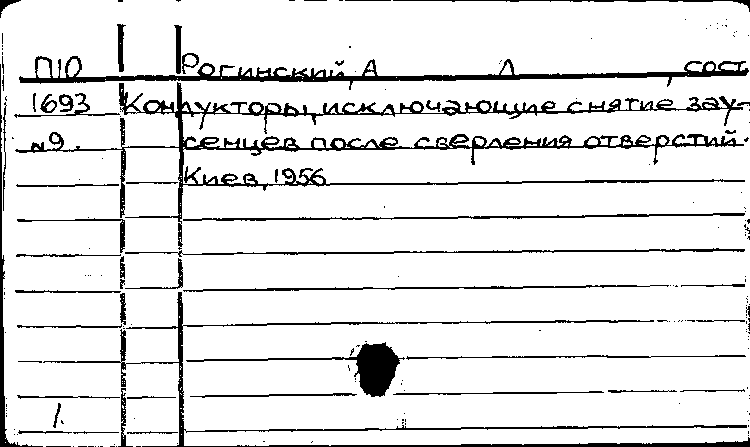 П10 Рогинский, А Л , сост.
1693 Кондукторы, исключающие снятие зау-
№9. сенцев после сверления отверстий.
Киев, 1956
1.